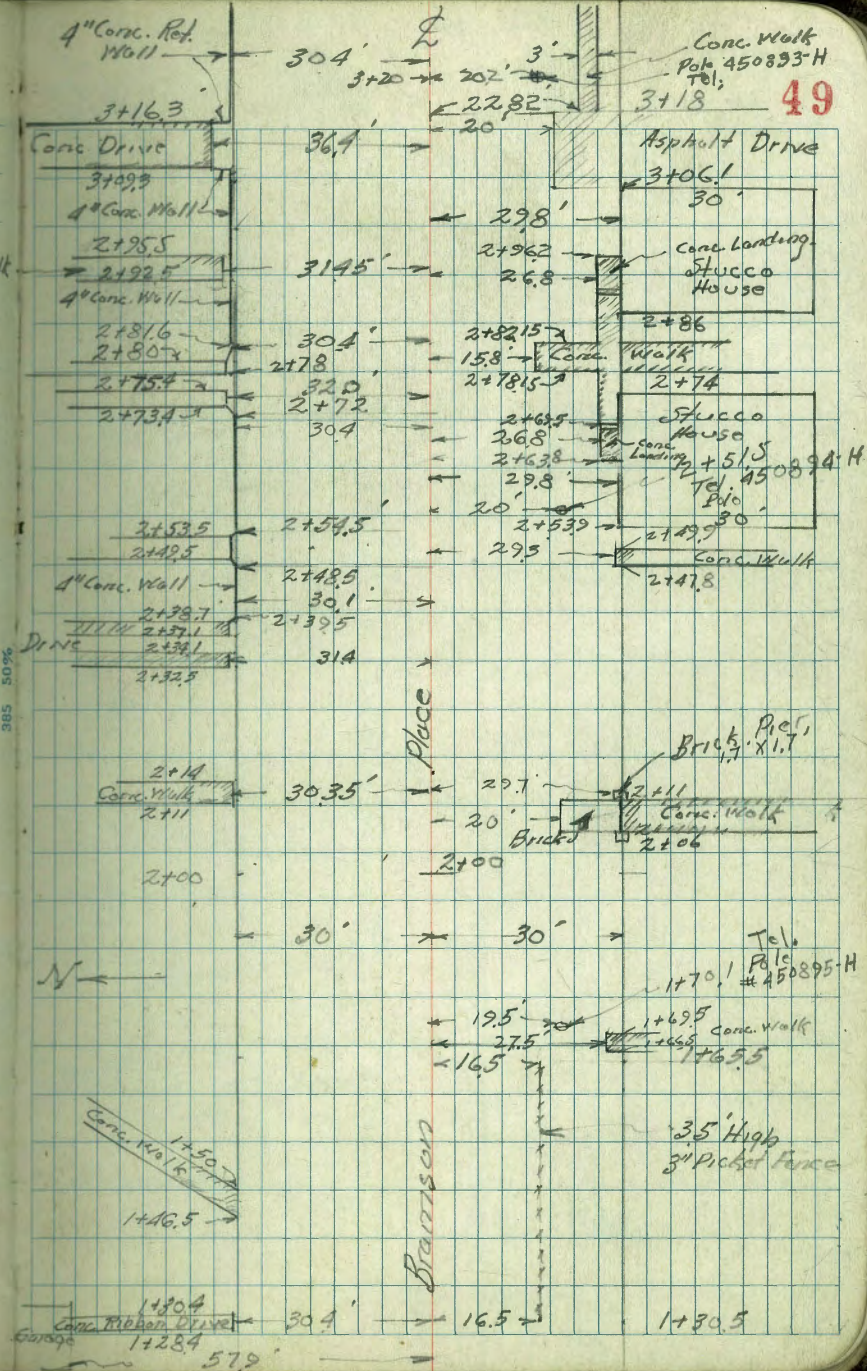 4" Conc. Ret.
Wall
30.4'
℄
3'
Conc. Walk
Pole 450893-H
Tel.
3+20
20.2'
22.82'
3+18
49
3+16.3
20'
Conc. Drive
36.4'
Asphalt Drive
3+09.3
3+06.1
30'
4" Conc. Wall
29.8'
2+95.5
2+96.2
Conc. Landing
2+92.5
31.45'
26.8
Stucco
House
4" Conc. Wall
2+86
2+81.6
30.4
2+82.15
2+80
2+78
15.8'
Conc. Walk
2+75.4
32.0'
2+78.15
2+74
2+73.4
2+72
30.4
2+69.5
Stucco
House
26.8
Conc.
Landing
2+63.8
2+51.5
Tel. 450894-H
Pole
29.8'
20'
30'
2+53.5
2+54.5
2+53.9
2+49.9
2+49.5
29.3
Conc. Walk
4" Conc. Wall
2+48.5
2+47.8
30.1
2+38.7
2+39.5
2+37.1
Drive
2+34.1
31.4
2+32.5
385 50%
Place
Brick Pier
1.7 x 1.7
2+14
Conc. Walk
30.35'
29.7'
2+11
2+11
20'
Brick
Conc. Walk
2+06
2+00
2+00
30'
30'
Tel.
Pole
# 450895-H
N
1+70.1
19.5'
1+69.5
Conc. Walk
27.5'
1+66.5
1+65.5
16.5
3.5' High
3" Picket Fence
Conc. Walk
1+50
1+46.5
Bramson
1+30.4
Conc. Ribbon Drive
30.4'
16.5
1+30.5
Garage
1+28.4
57.9'